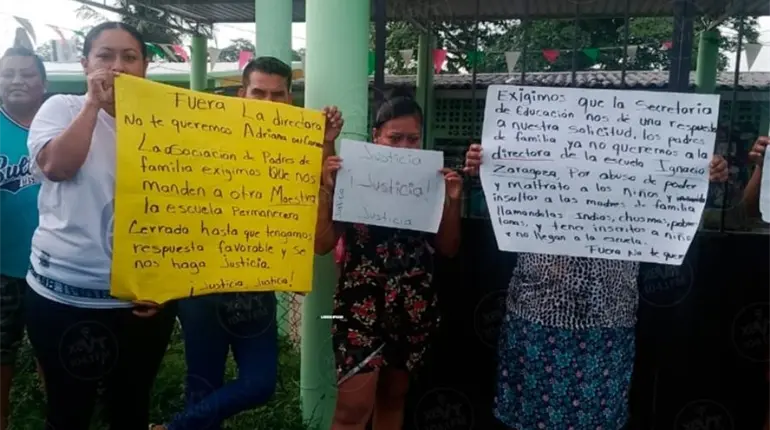 Fuera La directora
No te queremos Adriana
La asociacion de Padres de
familia exigimos Que nos
manden a otra Maestra
la escuela Permanecera
Cerrada hasta que tengamos
respuesta favorable y se
nos haga Justicia.
¡Justicia, Justicia!
Justicia
¡Justicia!
Justicia
Justicia
Exigimos que la Secretaria
de Educación nos dé una respuesta
a nuestra solicitud, los padres
de familia ya no queremos a la
directora de la escuela Ignacio
Zaragoza, Por abuso de poder
y maltrato a los niños y
insultar a las madres de familia
llamandolas Indias, chismosas,
y tener inscritos a niños
no llegan a la escuela.
Fuera No te